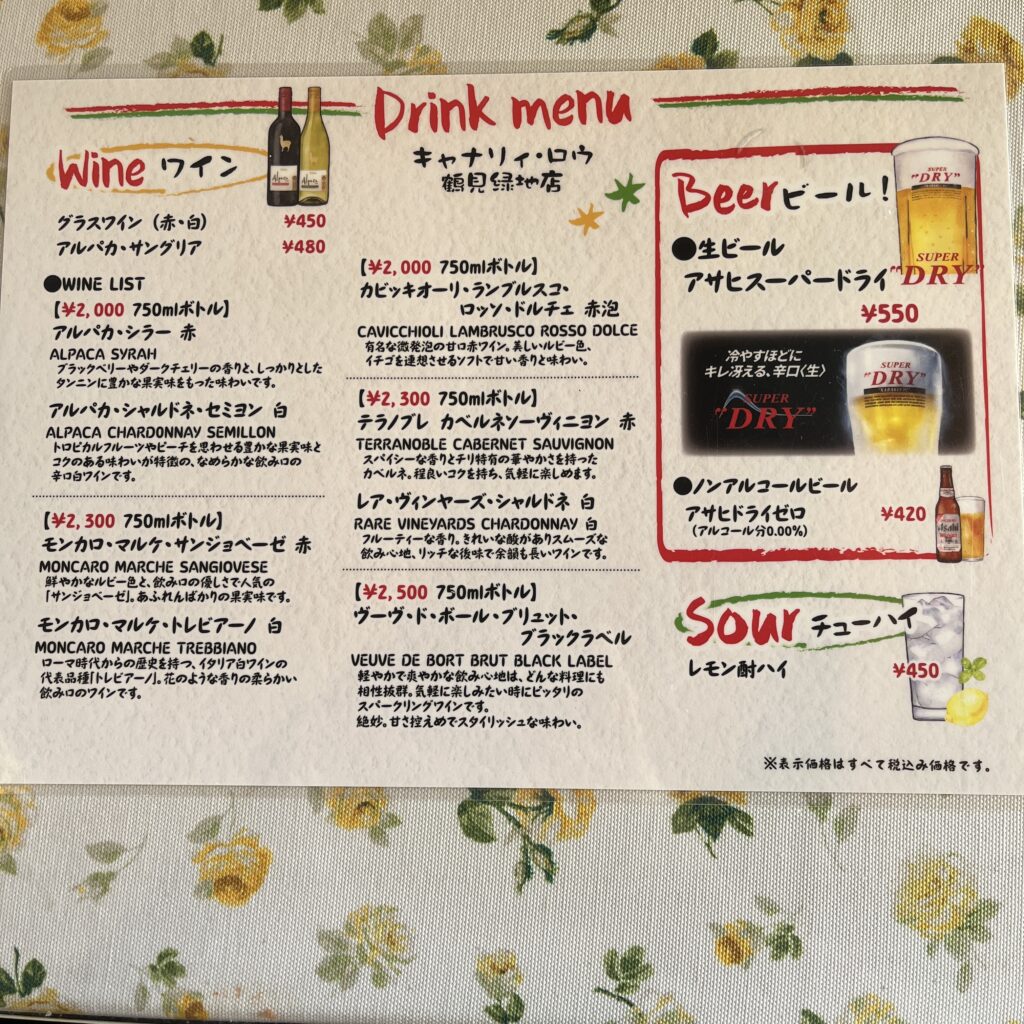 Drink menu
キャナリィ・ロウ
鶴見緑地店
Wine ワイン
グラスワイン (赤・白) ¥450
アルパカ・サングリア ¥480
●WINE LIST
【¥2,000 750mlボトル】
アルパカ・シラー 赤
ALPACA SYRAH
ブラックベリーやダークチェリーの香りと、しっかりとした
タンニンに豊かな果実味をもった味わいです。
アルパカ・シャルドネ・セミヨン 白
ALPACA CHARDONNAY SEMILLON
トロピカルフルーツやピーチを思わせる豊かな果実味と
コクのある味わいが特徴の、なめらかな飲み口の
辛口白ワインです。
【¥2,300 750mlボトル】
モンカロ・マルケ・サンジョベーゼ 赤
MONCARO MARCHE SANGIOVESE
鮮やかなルビー色と、飲み口の優しさで人気の
「サンジョベーゼ」。あふれんばかりの果実味です。
モンカロ・マルケ・トレビアーノ 白
MONCARO MARCHE TREBBIANO
ローマ時代からの歴史を持つ、イタリア白ワインの
代表品種「トレビアーノ」。花のような香りの柔らかい
飲み口のワインです。
【¥2,000 750mlボトル】
カビッキオーリ・ランブルスコ・
ロッソ・ドルチェ 赤泡
CAVICCHIOLI LAMBRUSCO ROSSO DOLCE
有名な微発泡の甘口赤ワイン。美しいルビー色、
イチゴを連想させるソフトで甘い香りと味わい。
【¥2,300 750mlボトル】
テラノブレ カベルネソーヴィニヨン 赤
TERRANOBLE CABERNET SAUVIGNON
スパイシーな香りとチリ特有の華やかさを持った
カベルネ。程良いコクを持ち、気軽に楽しめます。
レア・ヴィンヤーズ・シャルドネ 白
RARE VINEYARDS CHARDONNAY 白
フルーティーな香り。きれいな酸がありスムーズな
飲み心地、リッチな後味で余韻も長いワインです。
【¥2,500 750mlボトル】
ヴーヴ・ド・ボール・ブリュット・
ブラックラベル
VEUVE DE BORT BRUT BLACK LABEL
軽やかで爽やかな飲み心地は、どんな料理にも
相性抜群。気軽に楽しみたい時にピッタリの
スパークリングワインです。
絶妙。甘さ控えめでスタイリッシュな味わい。
Beer ビール!
SUPER
"DRY"
●生ビール
アサヒスーパードライ
SUPER
"DRY"
¥550
冷やすほどに
キレ冴える、辛口〈生〉
SUPER
"DRY"
SUPER
"DRY"
●ノンアルコールビール
アサヒドライゼロ ¥420
(アルコール分0.00%)
Asahi
Sour チューハイ
レモン酎ハイ ¥450
※表示価格はすべて税込み価格です。